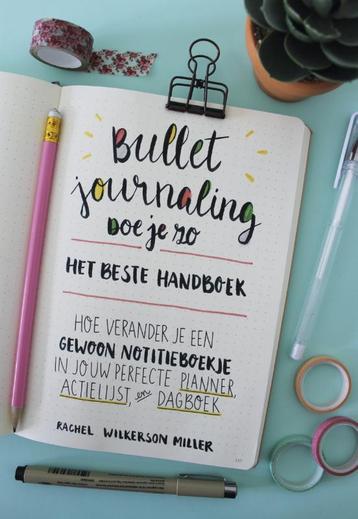 Bullet
journaling
Doe je zo
HET BESTE HANDBOEK
HOE VERANDER JE EEN
GEWOON NOTITIEBOEKJE
IN JOUW PERFECTE PLANNER,
ACTIELIJST, en DAGBOEK
RACHEL WILKERSON MILLER